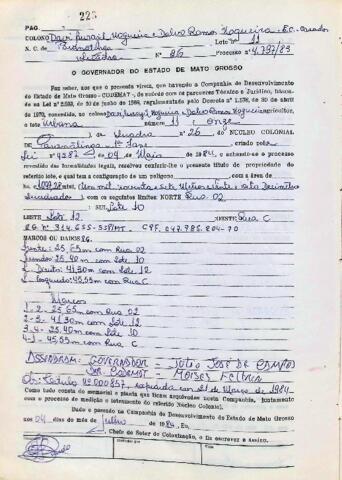 PAG. 223
COLONO Davi Jurazil Nogueira e Dalva Ramos Nogueira - E.C. casados
N. C. de Paranatinga Lote No 11
Quadra No 26 Processo No 4.797/83
O GOVERNADOR DO ESTADO DE MATO GROSSO
Faz saber, aos que o presente virem, que havendo a Companhia de Desenvolvimento
do Estado de Mato Grosso - CODEMAT -, de acordo com os pareceres Técnico e Jurídico, baseados
na Lei
regulamentada pelo Decreto nº 1.578, de 30 de abril
de 1973, concedido, ao colono Davi Jurazil Nogueira e Dalva Ramos Nogueira
o lote Urbano nº 11 (Onze
da Quadra nº 26 do NÚCLEO COLONIAL
de Paranatinga - 1ª Fase, criado pela
Lei 4287 de 04 de Maio de 1981, e achando-se o processo
revestido das formalidades legais, resolveu conferir-lhe o presente título de propriedade do
referido lote, o qual tem a configuração de um polígono com a área de
metros e decímetros
quadrados ), com os seguintes limites: NORTE Rua 02
SUL Lote 10
LESTE Lote 12 OESTE Rua C
CPF. 047.985.804-70
MARCOS OU DADOS
Frente: 25,65m com Rua 02
Fundos: 25,40m com Lote 10
L. Direito: 41,30m com Lote 12
L. Esquerdo: 45,55m com Rua C
Marcos
1-2 - 25,65m com Rua 02
2-3 - 41,30m com Lote 12
3-4 - 25,40m com Lote 10
4-1 - 45,55m com Rua C
ASSINARAM: GOVERNADOR - JULIO JOSÉ DE CAMPOS
DIR. CODEMAT - MOISES FELTRIN
de Março de 1984
Como tudo consta do memorial e planta que ficam arquivados nesta Companhia, juntamente
com o processo de medição e loteamento do referido Núcleo Colonial.
Dado e passado na Companhia de Desenvolvimento do Estado de Mato Grosso
aos 04 dias do mês de Julho de 1984. Eu,
Chefe do Setor de Colonização, o fiz escrever e assino.